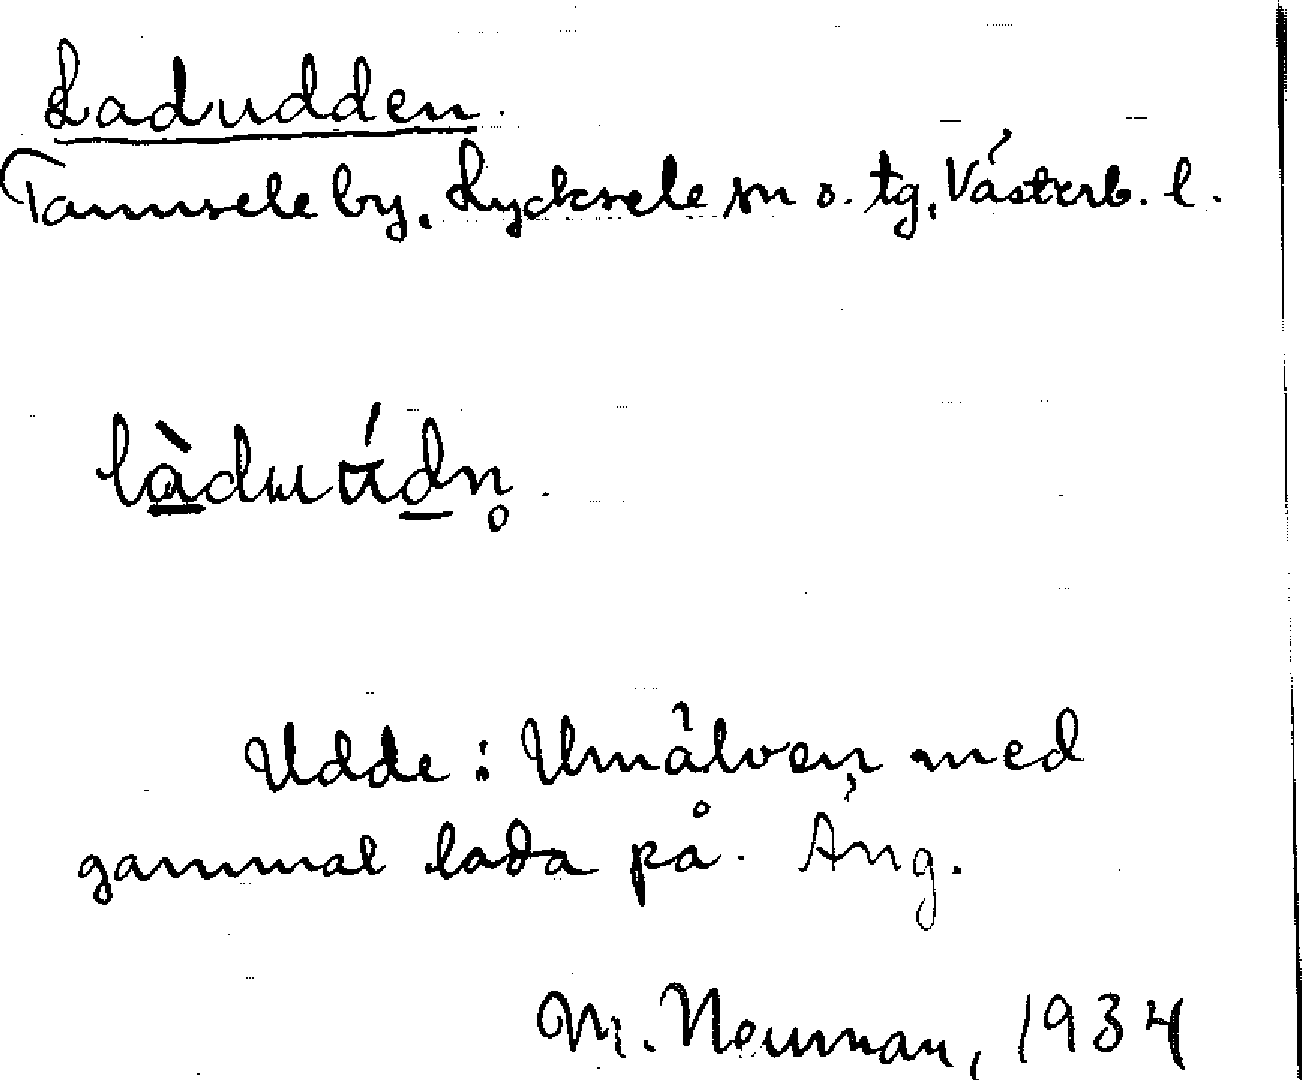 Ladudden.
Tannsele by, Lycksele sn o. tg, Västerb. l.
làduu̇́dn̥.
Udde i Umälven med
gammal lada på. Äng.
M. Neuman, 1934